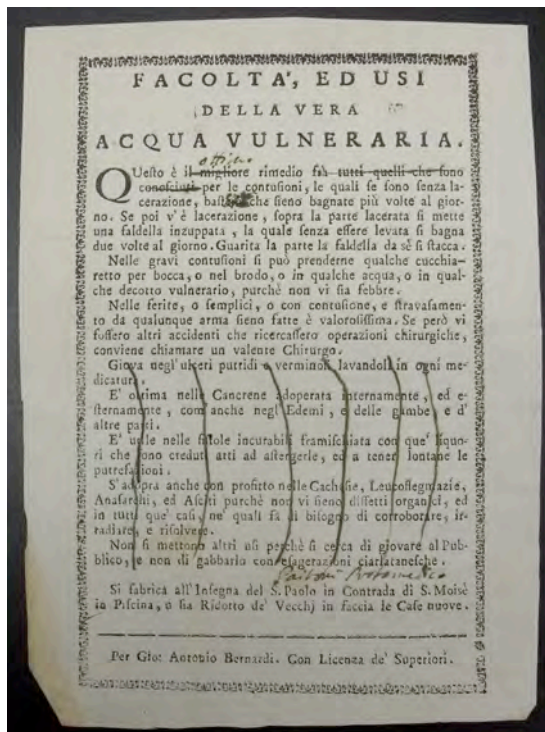 FACOLTA', ED USI
DELLA VERA
ACQUA VULNERARIA.
ottimo
QUeſto è il migliore rimedio fra tutti quelli che ſono
conoſciuti per le contuſioni, le quali ſe ſono ſenza la-
cerazione, baſta che ſieno bagnate più volte al gior-
no. Se poi v'è lacerazione, ſopra la parte lacerata ſi mette
una faldella inzuppata, la quale ſenza eſſere levata ſi bagna
due volte al giorno. Guarita la parte la faldella da sè ſi ſtacca.
Nelle gravi contuſioni ſi può prenderne qualche cucchia-
retto per bocca, o nel brodo, o in qualche acqua, o in qual-
che decotto vulnerario, purchè non vi ſia febbre.
Nelle ferite, o ſemplici, o con contuſione, e ſtravaſamen-
to da qualunque arma ſieno fatte è valoroſiſſima. Se però vi
foſſero altri accidenti che ricercaſſero operazioni chirurgiche,
conviene chiamare un valente Chirurgo.
Giova negl'ulceri putridi e verminoſi lavandoli in ogni me-
dicatura.
E' ottima nelle Cancrene adoperata internamente, ed e-
ſternamente, com' anche negl'Edemi, e delle gambe, e d'
altre parti.
E' utile nelle fiſtole incurabili framiſchiata con que' liquo-
ri che ſono creduti atti ad aſtergerle, ed a tener lontane le
putrefazioni.
S'adopra anche con profitto nelle Cacheſie, Leucoflegmazie,
Anaſarchi, ed Aſciti purchè non vi ſieno diffetti organici, ed
in tutti que' caſi, ne' quali fa di biſogno di corroborare, ir-
radiare, e riſolvere.
Non ſi mettono altri uſi perchè ſi cerca di giovare al Pub-
blico, e non di gabbarlo con eſagerazioni ciarlataneſche.
Si fabrica all'Inſegna del S. Paolo in Contrada di S. Moisè
in Piſcina, o ſia Ridotto de' Vecchj in faccia le Caſe nuove.
Per Gio: Antonio Bernardi. Con Licenza de' Superiori.